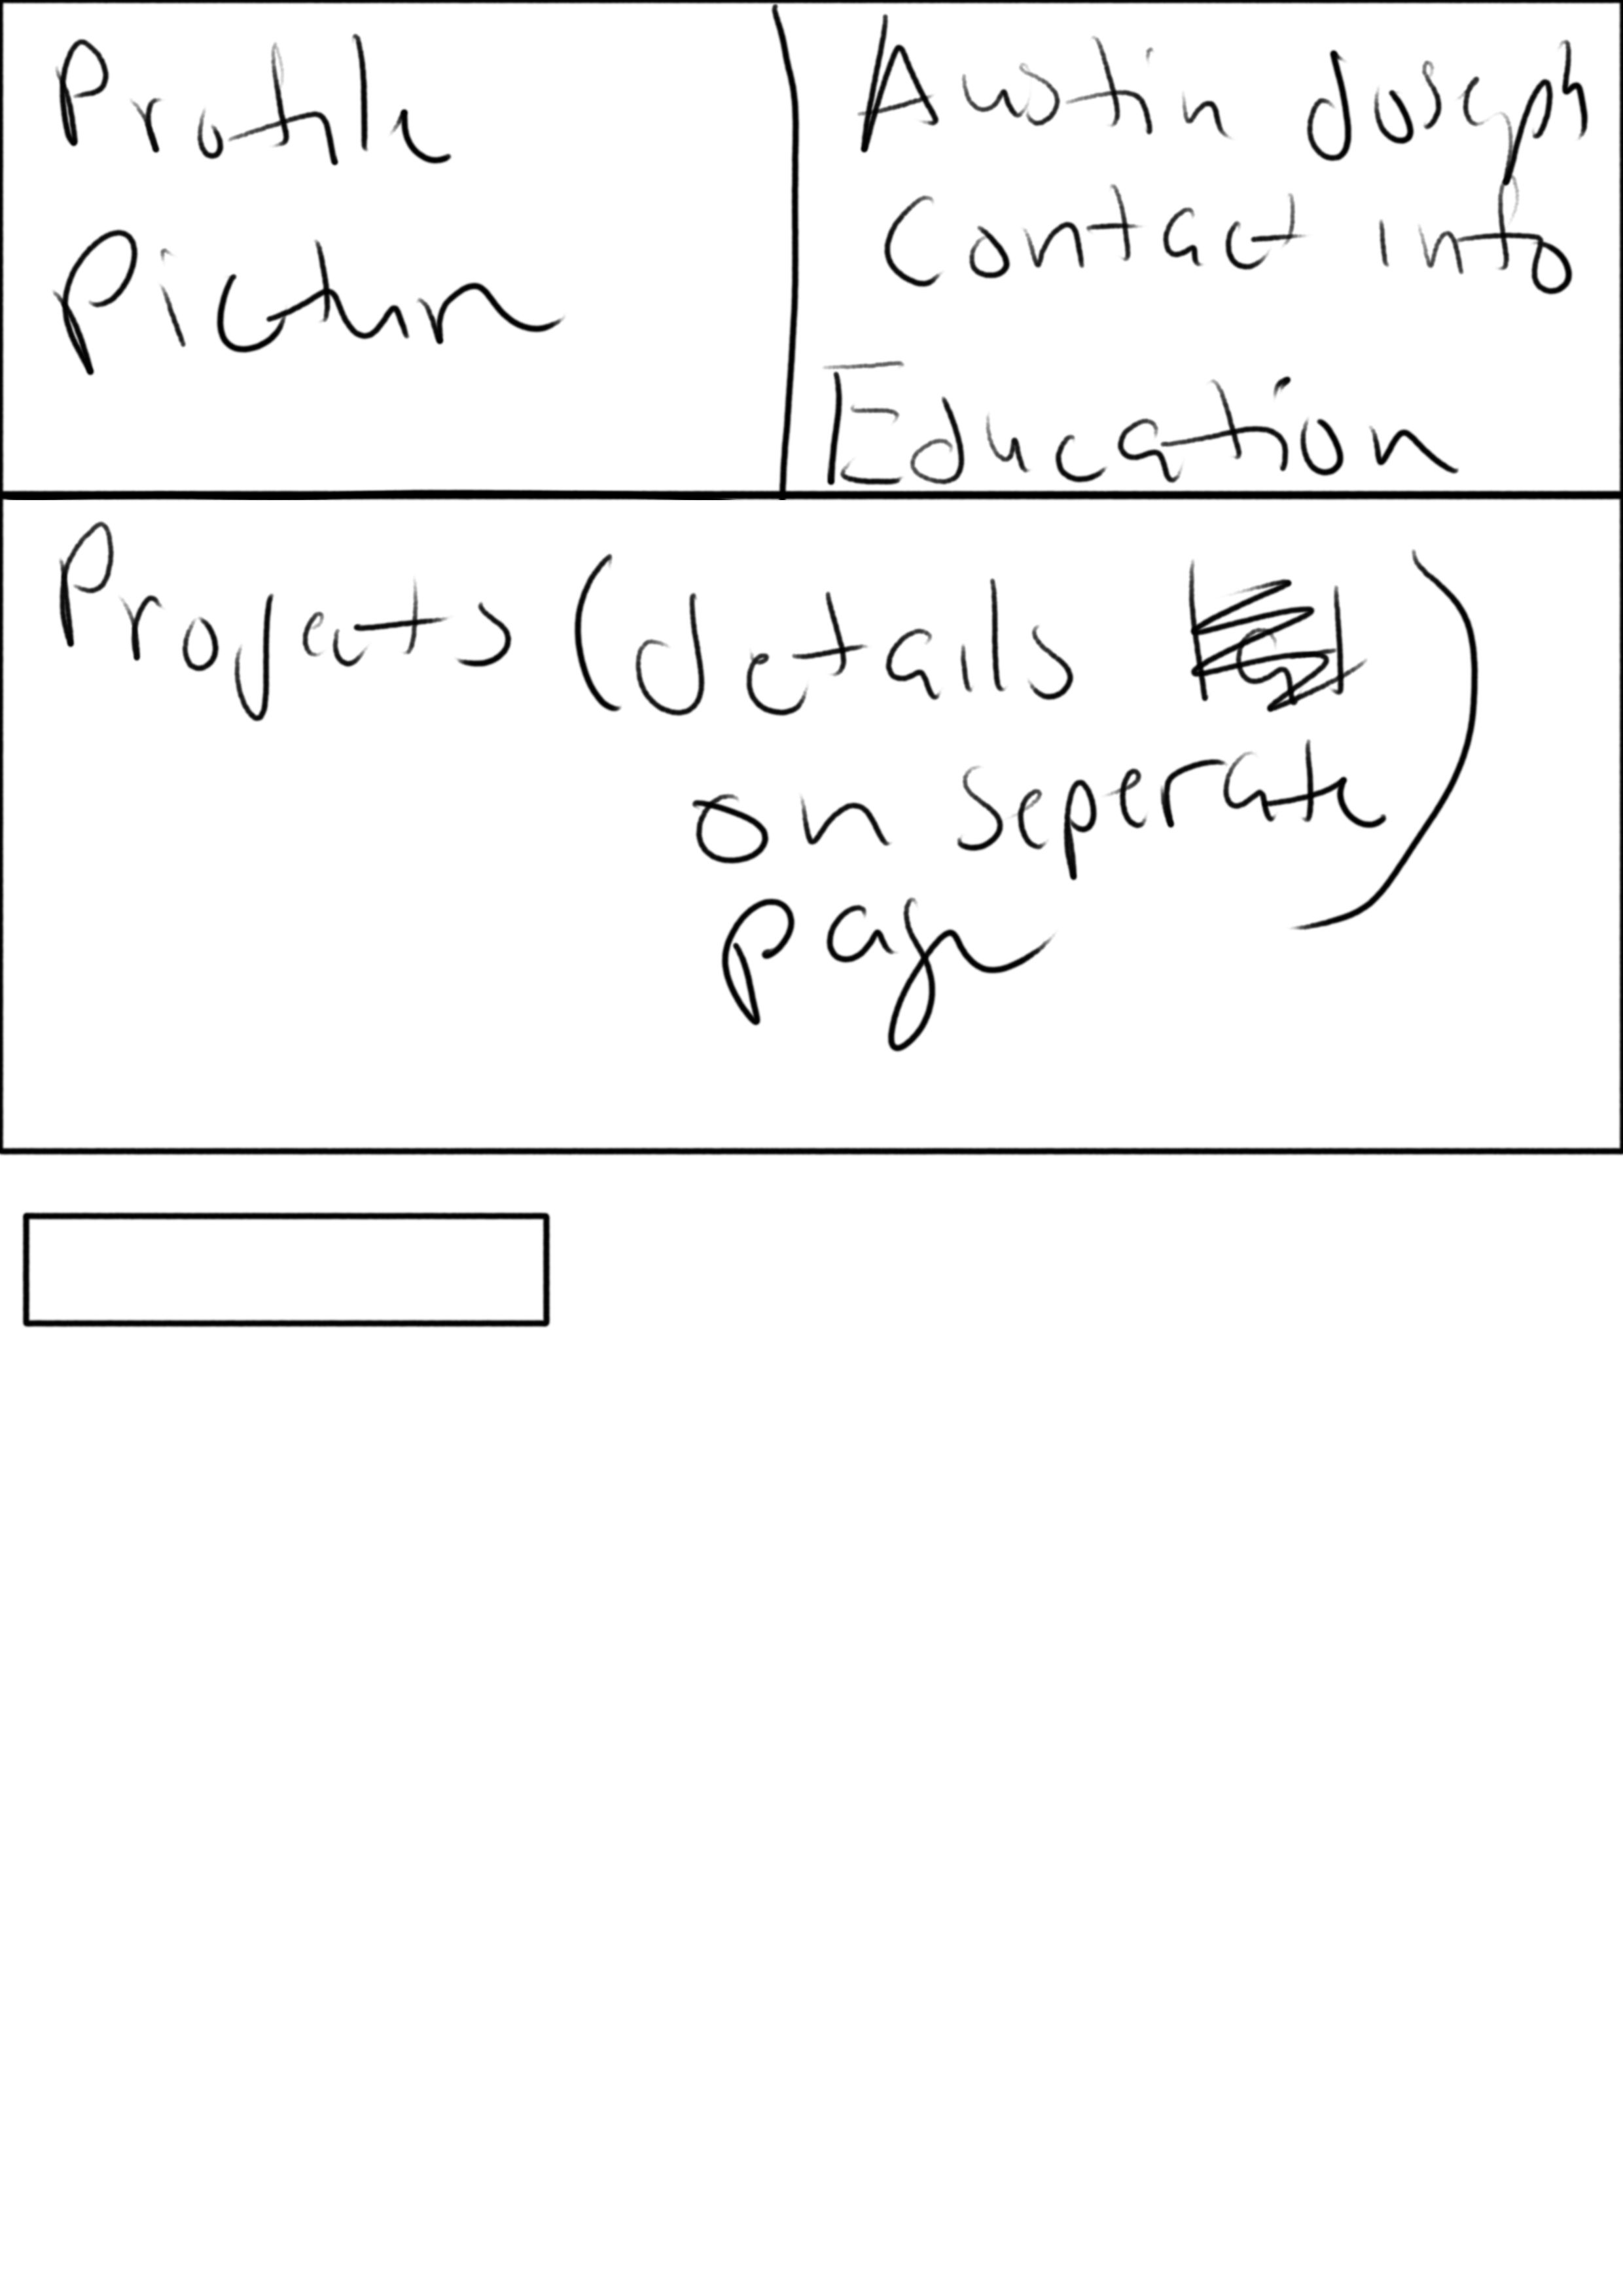 Profile
Picture
Austin Joseph
Contact info
Education
Projects (details
on seperate
page)